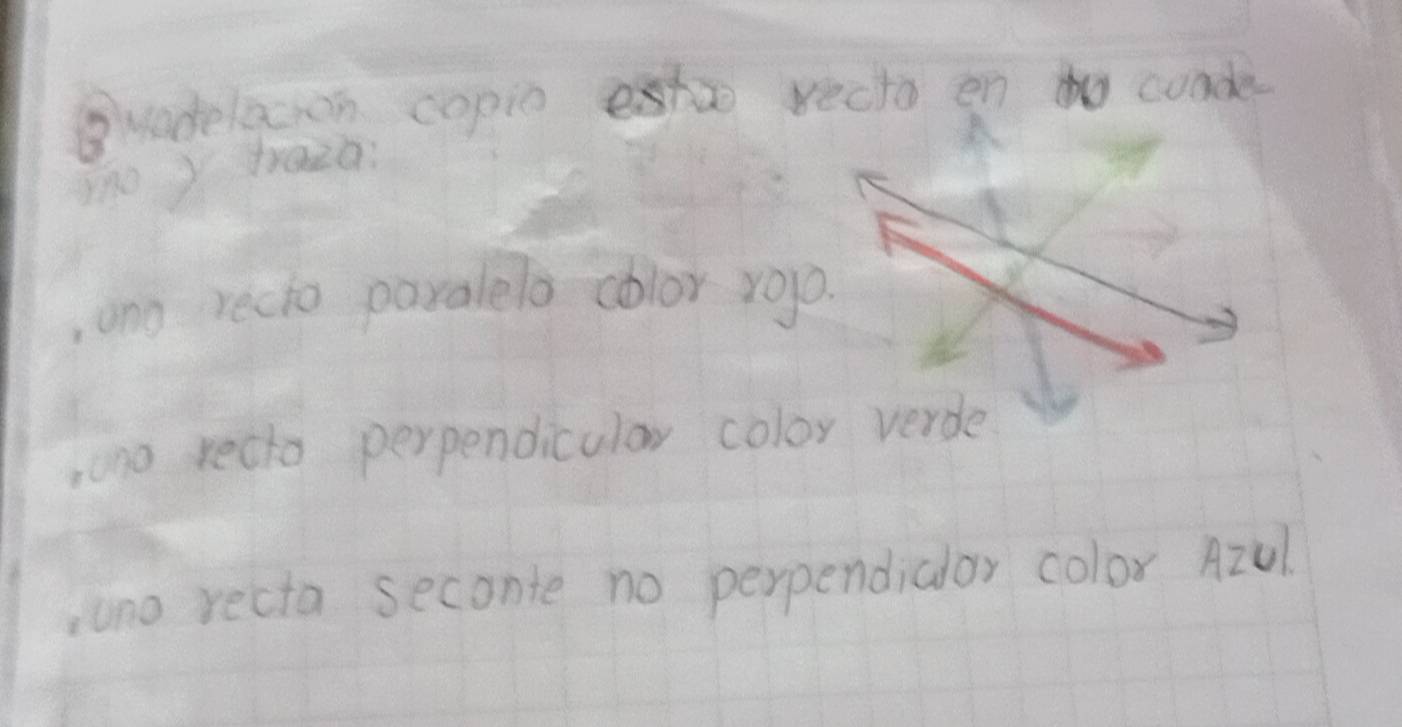 ③ Modelación copia esta recta en tu cuader
no y traza:
. una recta paralela color rojo.
. una recta perpendicular color verde
. una recta secante no perpendicular color Azul.